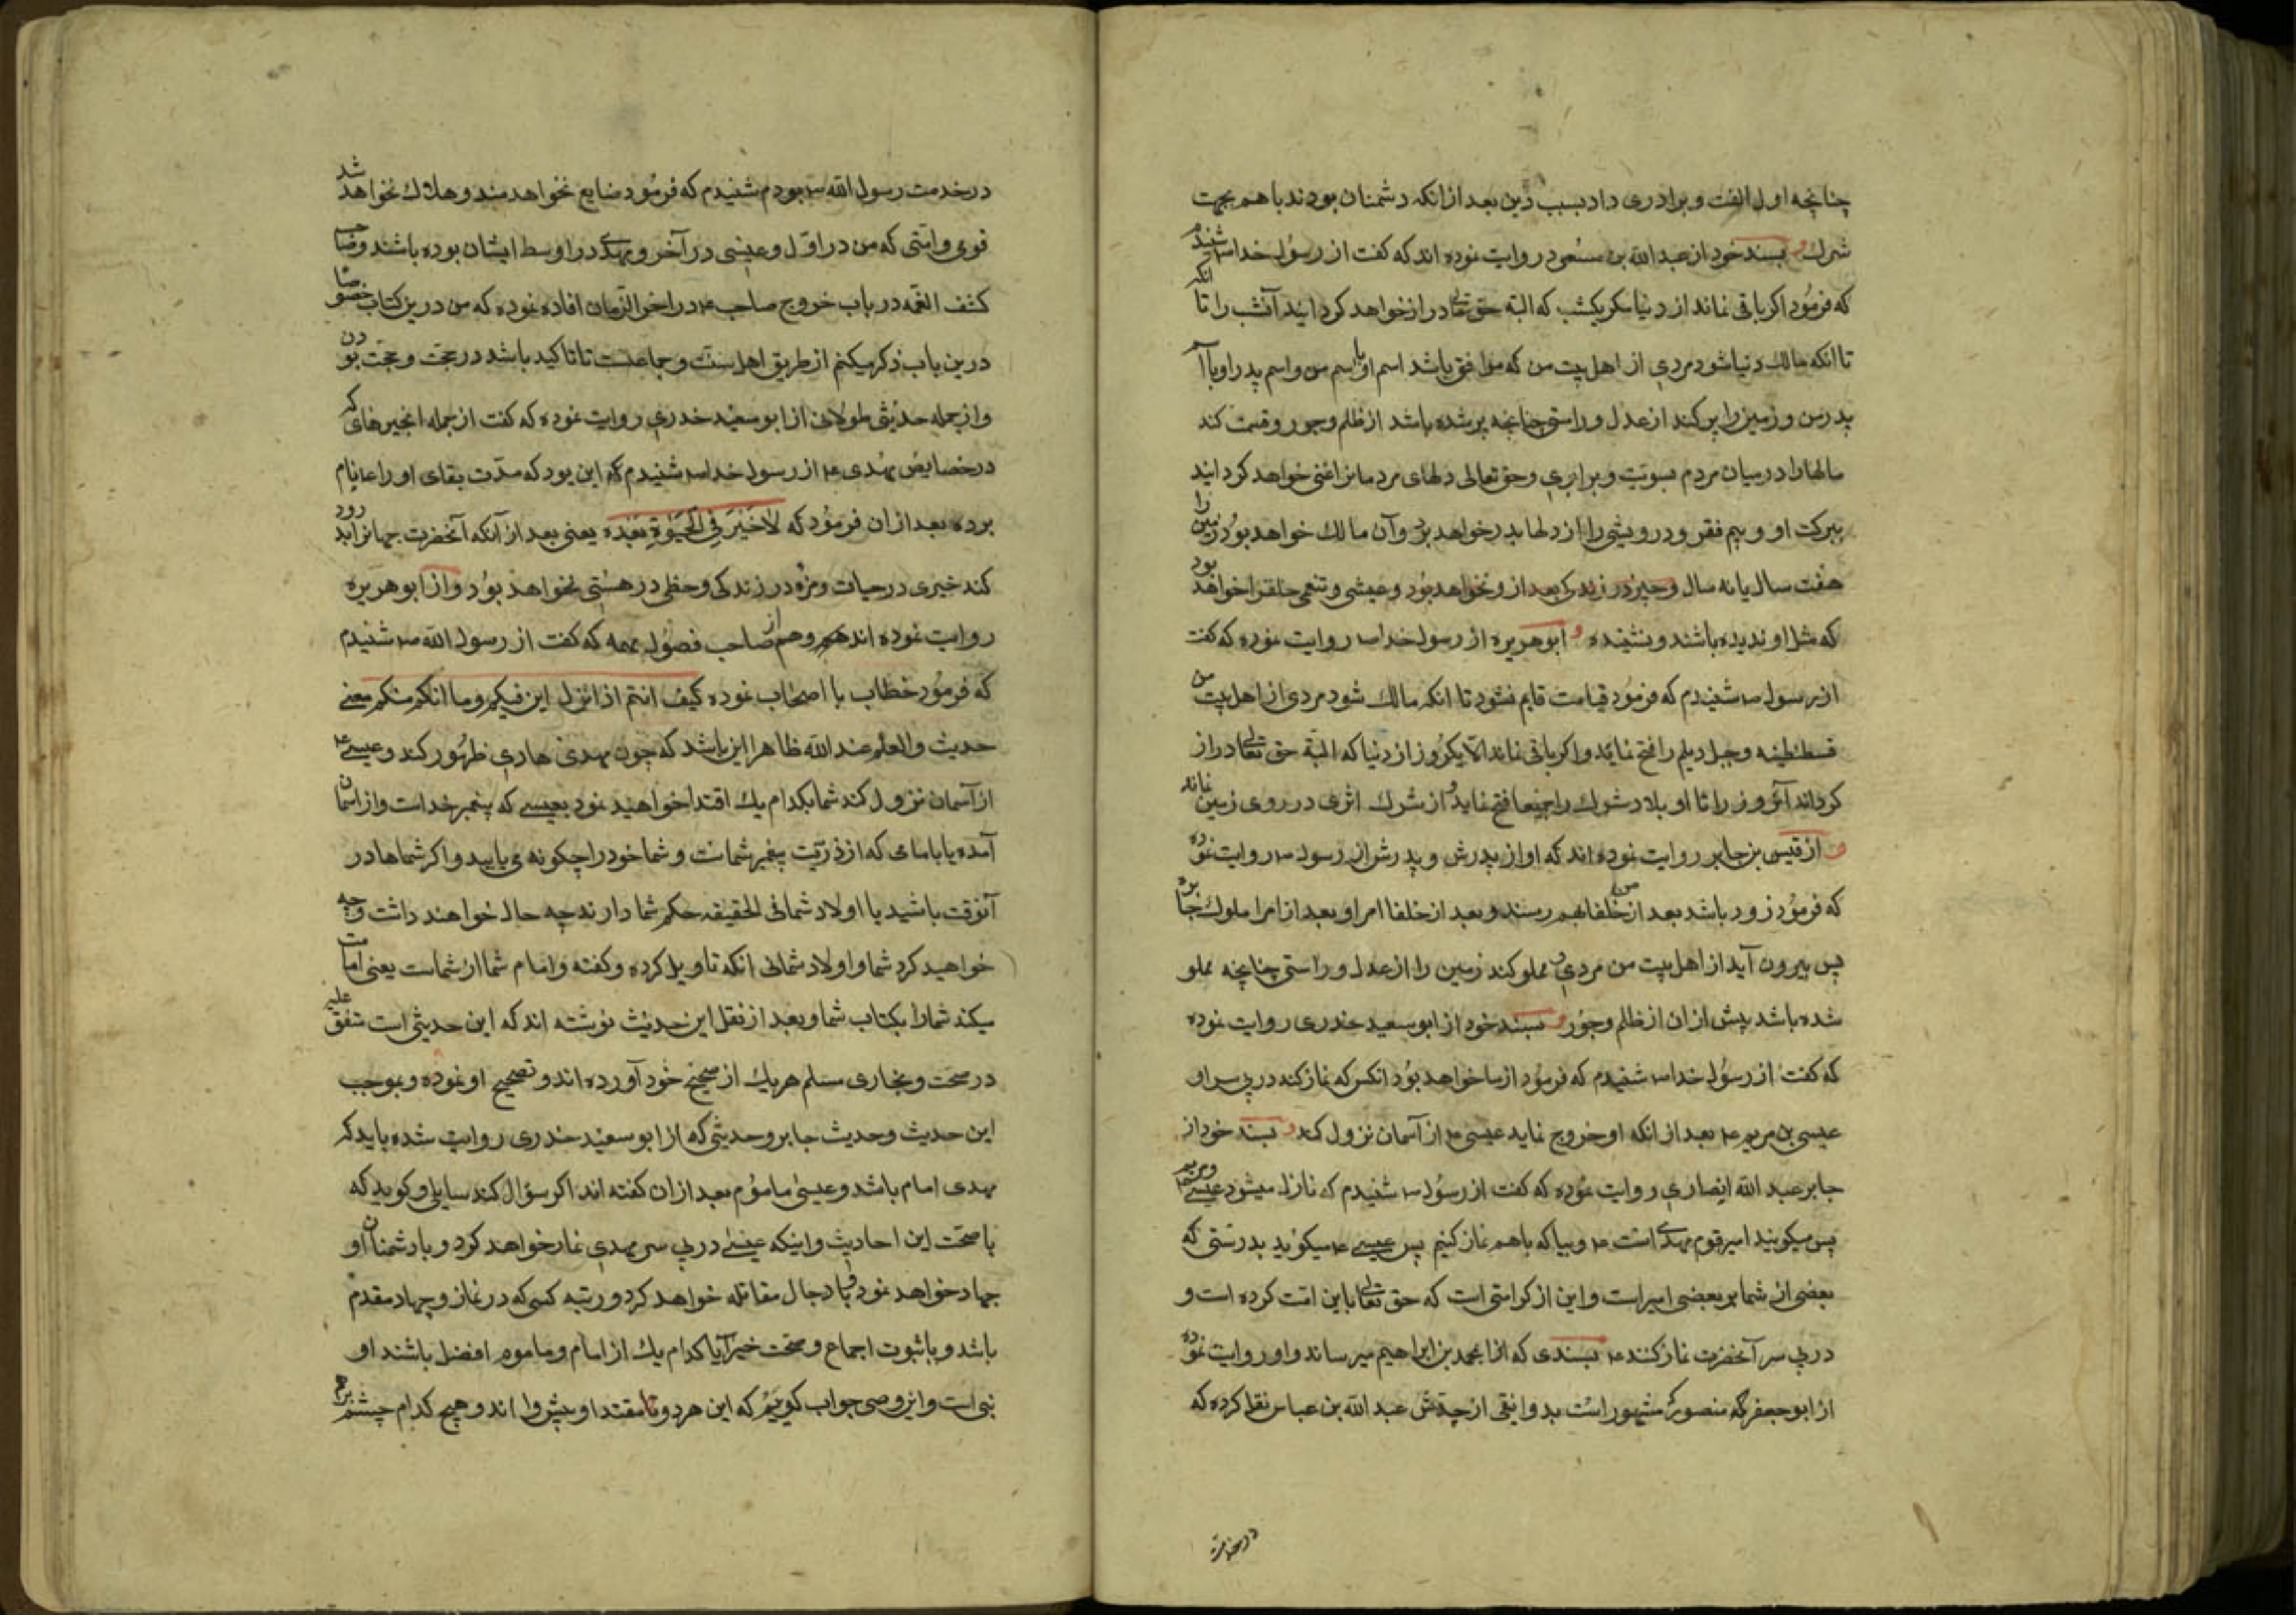 چنانچه اول الفت و برادری داد بسبب دین بعد از انکه دشمنان بودند با هم بجهت
شرک و بسند خود از عبد الله بن مسعود روایت نموده اند که کفت از رسول خدا ص شنیدم
که فرمود اکر باقی نماند از دنیا مکر یکشب که البته حق تعالی دراز خواهد کردانید آنشب را تا انکه
تا انکه مالک دنیا شود مردی از اهل بیت من که موافق باشد اسم او با اسم من و اسم پدر او با اسم
پدر من و زمین را پر کند از عدل و راستی چنانچه پر شده باشد از ظلم و جور و قسمت کند
مالها را در میان مردم بسویت و برابری و حق تعالی دلهای مردمانرا غنی خواهد کردانید
ببرکت او و بیم فقر و درویشی را از دلها بدر خواهد برد و آن مالک خواهد بود زمین را
هفت سال یا نه سال و خیر در زندکی بعد از و نخواهد بود و عیشی و تنعمی خلقرا خواهد بود
که مثل او ندیده باشند و نشنیده و ابو هریره از رسول خدا ص روایت نموده که کفت
از رسول ص شنیدم که فرمود قیامت قایم نشود تا انکه مالک شود مردی از اهل بیت من
قسطنطنیه و جبل دیلم را فتح نماید و اکر باقی نماند الا یکروز از دنیا که البتة حق تعالی دراز
کرداند آنروز را تا او بلاد شرک را جمیعا فتح نماید و از شرک اثری در روی زمین نماند
و از قیس بن جابر روایت نموده اند که او از پدرش و پدرش از رسول ص روایت نموده
که فرمود زود باشد بعد از من خلفا بهم رسند و بعد از خلفا امرا و بعد از امرا ملوک جبابره
پس بیرون آید از اهل بیت من مردی و مملو کند زمین را از عدل و راستی چنانچه مملو
شده باشد پیش ازان از ظلم و جور و بسند خود از ابو سعید خدری روایت نموده
که کفت از رسول خدا ص شنیدم که فرمود از ما خواهد بود انکس که نماز کند در پی سر او
عیسی بن مریم ع بعد از انکه او خروج نماید عیسی ع از آسمان نزول کند و بسند خود از
جابر عبد الله انصاری روایت نموده که کفت از رسول ص شنیدم که نازل میشود عیسی
پس میکویند امیر قوم مهدی است ع و بیا که با هم نماز کنیم پس عیسی ع میکوید بدرستی که
بعضی از شما بر بعضی امیر است و این از کرامتی است که حق تعالی باین امت کرده است و
در پی سر آنحضرت نماز کند ع بسندی که انرا بمحمد بن ابراهیم میرساند و او روایت نموده
از ابو جعفر که منصور مشهور است بدوانیقی از جدش عبد الله بن عباس نقل کرده که
درخدمت
در خدمت رسول الله ص بودم شنیدم که فرمود ضایع نخواهد شد و هلاک نخواهد شد
قوی و امتی که من در اول و عیسی در آخر و مهدی در اوسط ایشان بوده باشند و صاحب
کشف الغمه در باب خروج صاحب ع در اخر الزمان افاده نموده که من درین کتاب خصوصا
درین باب ذکر میکنم از طریق اهل سنت و جماعت تا تاکید باشد در حجت و حجت بودن
و از جمله حدیثی طولانی از ابو سعید خدری روایت نموده که کفت از جمله انچیزهای که
در خصایص مهدی ع از رسول خدا ص شنیدم این بود که مدت بقای او را عا نام
برده بعد ازان فرمود که لا خیر فی الحیوة بعده یعنی بعد از آنکه آنحضرت جهانرا بدرود
کند خیری در حیات و مزه در زندکی و حظی در هستی نخواهد بود و از ابو هریره
روایت نموده اند هم و هم از صاحب فصول مهمه که کفت از رسول الله ص شنیدم
که فرمود خطاب با اصحاب نموده کیف انتم اذا نزل ابن فیکم و اما انکم منکم معنی
حدیث و العلم عند الله ظاهرا این باشد که چون مهدی هادی ظهور کند و عیسی ع
از آسمان نزول کند شما بکدام یک اقتدا خواهید نمود بعیسی که پیغمبر خداست و از اسمان
آمده یا بامامی که از ذریت پیغمبر شماست و شما خود را چکونه می یابید و اکر شماها در
آنوقت باشید یا اولاد شما فی الحقیقه حکم شما دارند چه حال خواهند داشت و چه
خواهید کرد شما و اولاد شما انکه تاویل کرده و کفته و امام شما از شماست یعنی امامت
میکند شما را بکتاب شما و بعد از نقل این حدیث نوشته اند که این حدیثی است متفق علیه
در صحت و بخاری مسلم هر یک از صحیح خود آورده اند و تصحیح او نموده و بموجب
این حدیث و حدیث جابر و حدیثی که از ابو سعید خدری روایت شده باید که
مهدی امام باشد و عیسی ماموم بعد ازان کفته اند اکر سؤال کند سایلی و کوید که
با صحت این احادیث و اینکه عیسی در پی سر مهدی نماز خواهد کرد و با دشمنان او
جهاد خواهد نمود و با دجال مقاتله خواهد کرد و رتبه کسی که در نماز و جهاد مقدم
باشد و با ثبوت اجماع و صحت خبر آیا کدام یک از امام و ماموم افضل باشند او
نبی است و این وصی جواب کوئیم که این هر دو مقتدا و پیشوا اند و هیچ کدام چشم برهم